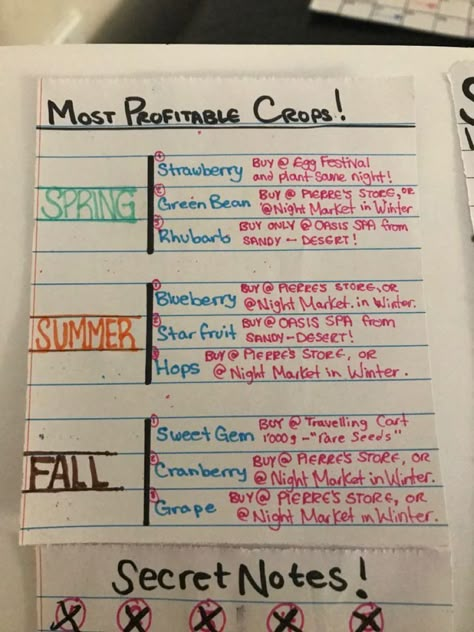 MOST PROFITABLE CROPS!
SPRING
1 Strawberry BUY @ Egg Festival
and plant same night!
2 Green Bean BUY @ PIERRE'S STORE, OR
@Night Market in Winter
3 Rhubarb BUY ONLY @ OASIS SPA from
SANDY - DESERT!
SUMMER
1 Blueberry BUY @ PIERRE'S STORE, OR
@Night Market. in Winter.
2 Starfruit BUY @ OASIS SPA from
SANDY-DESERT!
3 Hops BUY @ PIERRE'S STORE, OR
@ Night Market in Winter.
FALL
1 Sweet Gem BUY @ Travelling Cart
1000g -"rare seeds"
2 Cranberry BUY @ PIERRE'S STORE, OR
@ Night Market in Winter.
3 Grape BUY @ PIERRE'S STORE, OR
@ Night Market in Winter.
Secret Notes!
X X X X X